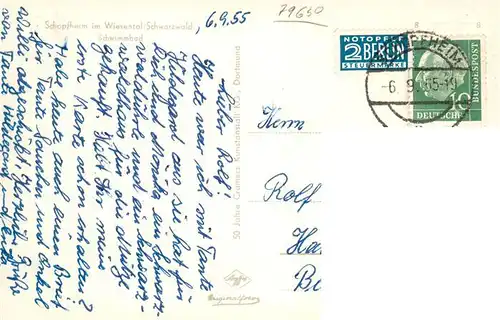 Schopfheim im Wiesental/Schwarzwald
Schwimmbad
6.9.55
79650
Lieber Rolf!
Heute war ich mit Tante
Hildegard aus sie hat für
Dich und Monika ein Schwarz-
waldührle und ein Schwarz-
für die Mütze
gekauft. Hat Ihr meine
erste Karte schon erhalten?
Habe heute auch einen Brief
für Tante und Onkel
Willi abgeschickt. Herzliche Grüße
von Tante Hildegard
50 Jahre Cramers Kunstanstalt KG., Dortmund
Agfa
Originalfoto
NOTOPFER
2 BERLIN
STEUERMARKE
-6.9.55-19
DEUTSCHE
BUNDESPOST
10
Herrn
Rolf
Ha
B